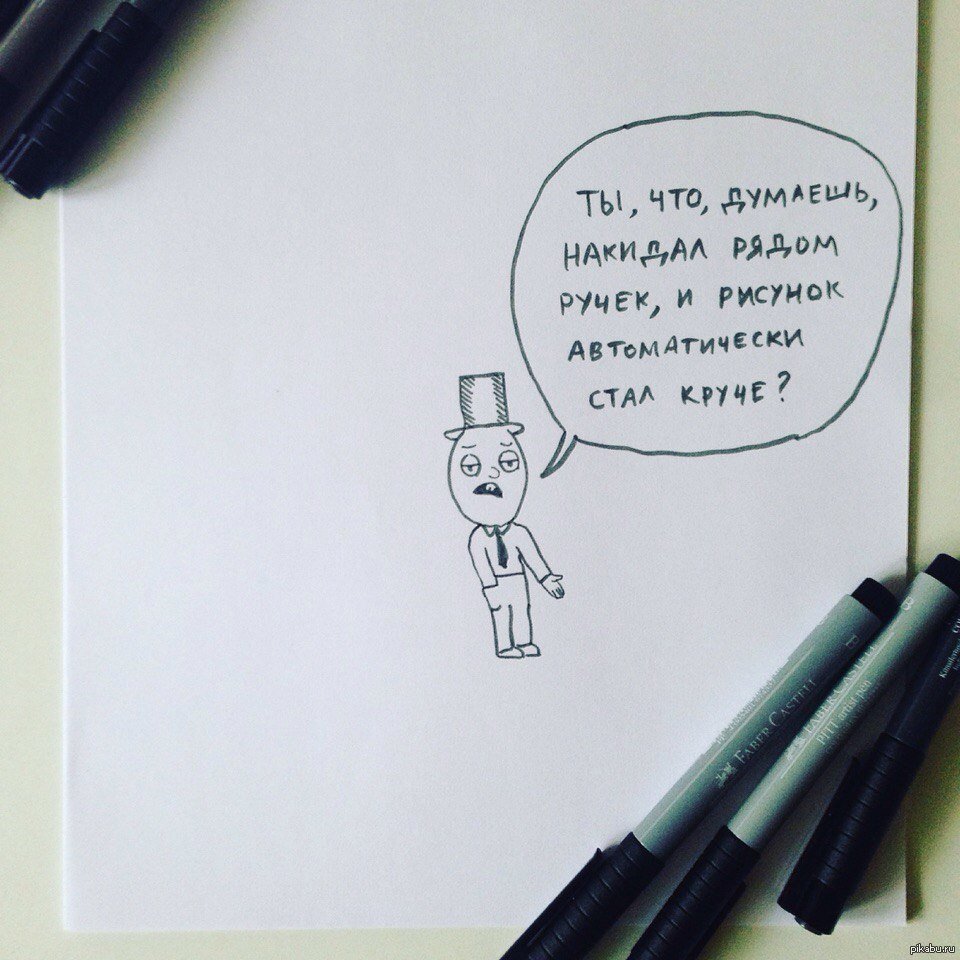 ТЫ, ЧТО, ДУМАЕШЬ,
НАКИДАЛ РЯДОМ
РУЧЕК, И РИСУНОК
АВТОМАТИЧЕСКИ
СТАЛ КРУЧЕ?
FABER CASTELL
FABER CASTELL
PITT artist pen
pikabu.ru